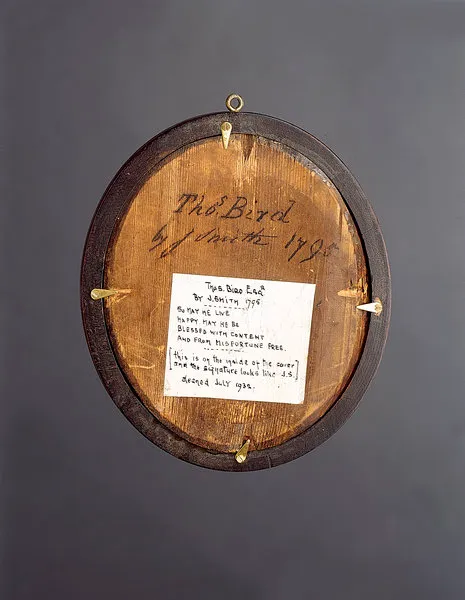 Thos. Bird
by J Smith 1795
THOS. BIRD ESQR
BY J. SMITH 1795
SO MAY HE LIVE
HAPPY MAY HE BE
BLESSED WITH CONTENT
AND FROM MISFORTUNE FREE.
[this is on the inside of the cover
and the signature looks like J.S]
cleaned JULY 1932.